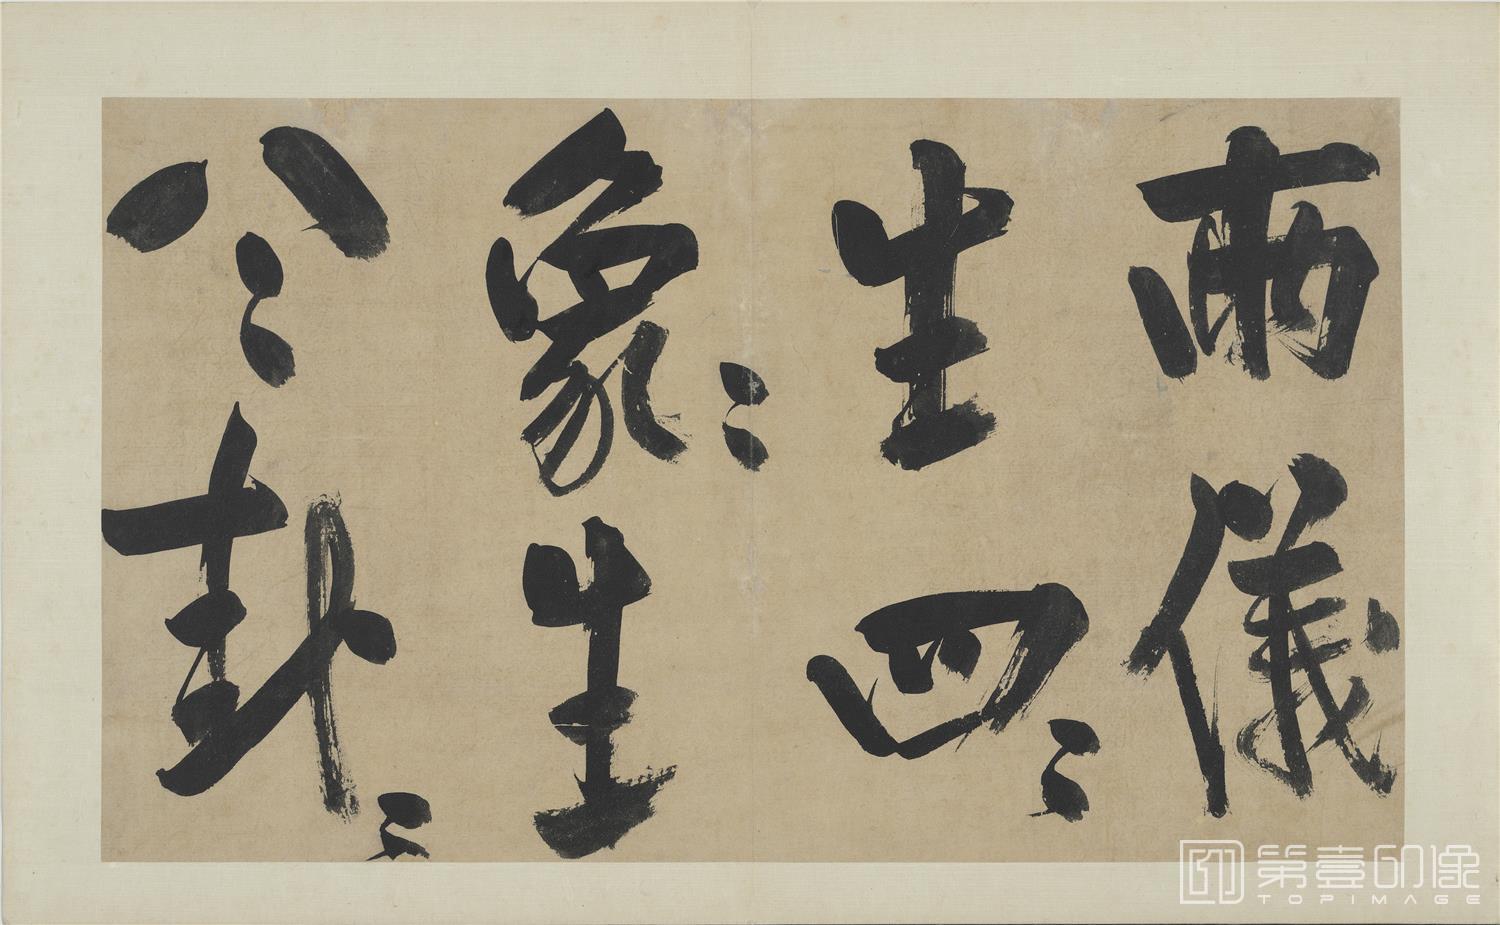 兩儀
生四〻
象〻生
八〻卦〻
第壹印像
TOPIMAGE